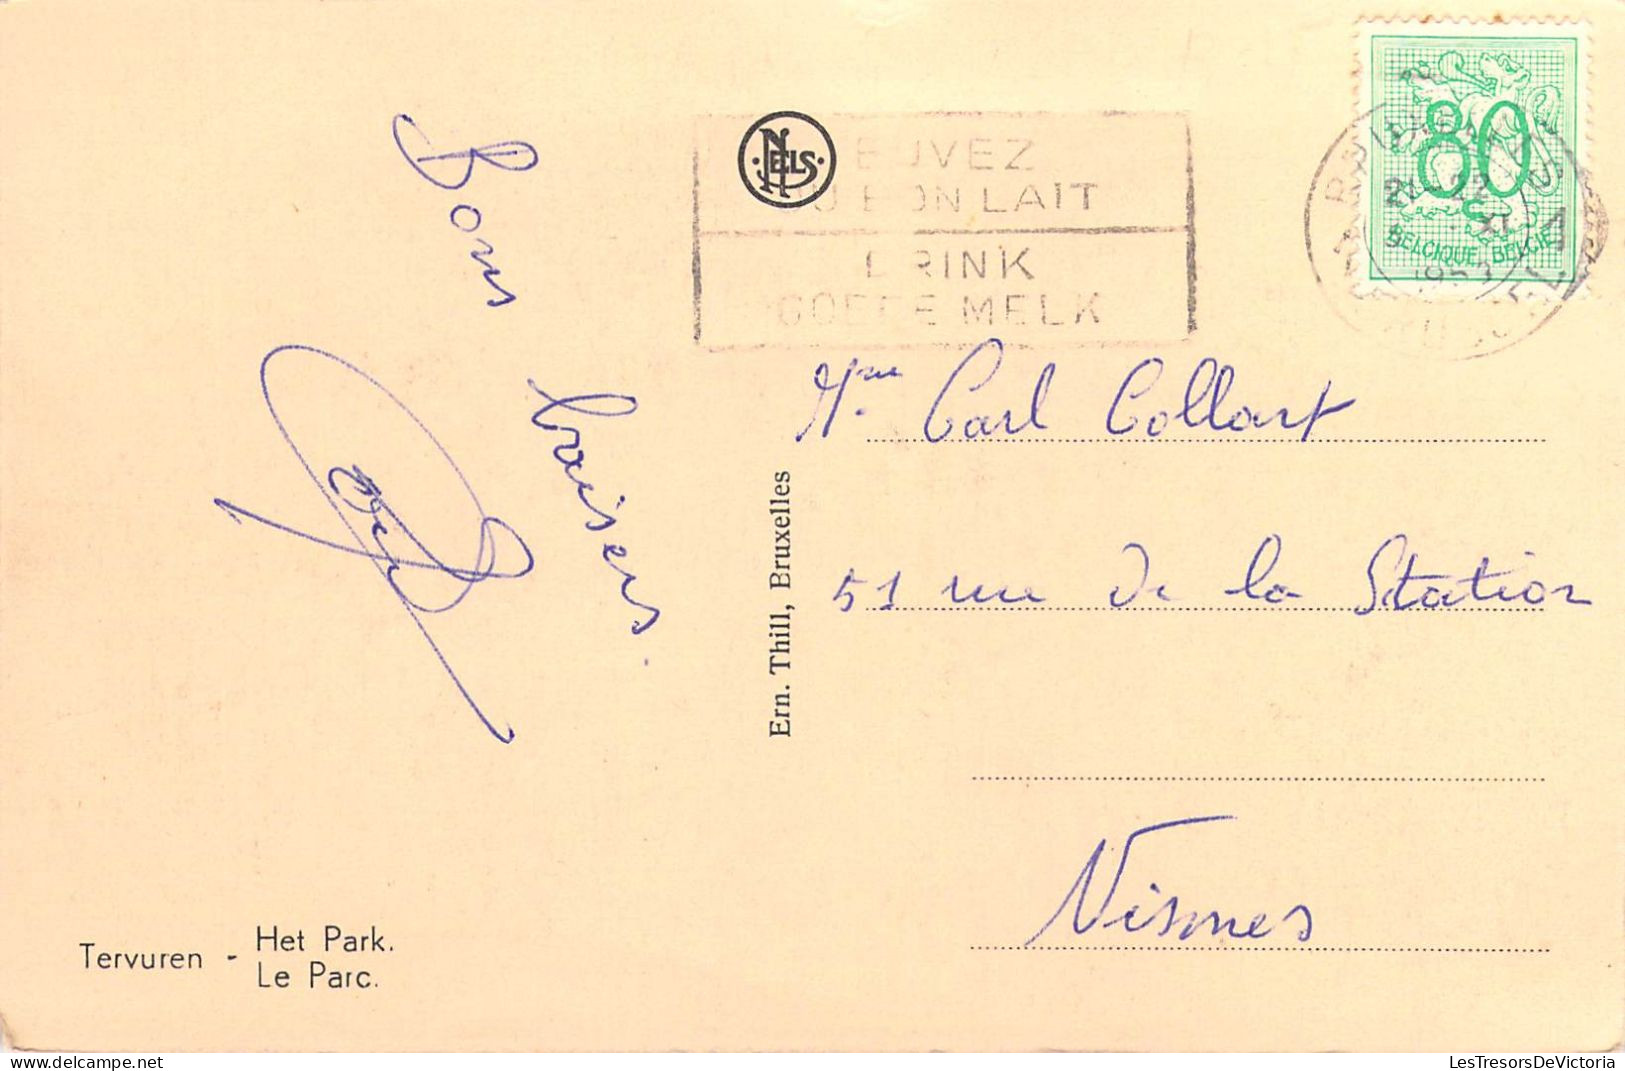 Bons
baisers.
NELS
BUVEZ
DU BON LAIT
DRINK
GOEDE MELK
80
BELGIQUE BELGIË
21-22
XI
Mme Carl Collart
51 rue de la Station
Nismes
Ern. Thill, Bruxelles
Tervuren - Het Park.
Le Parc.
LesTresorsDeVictoria